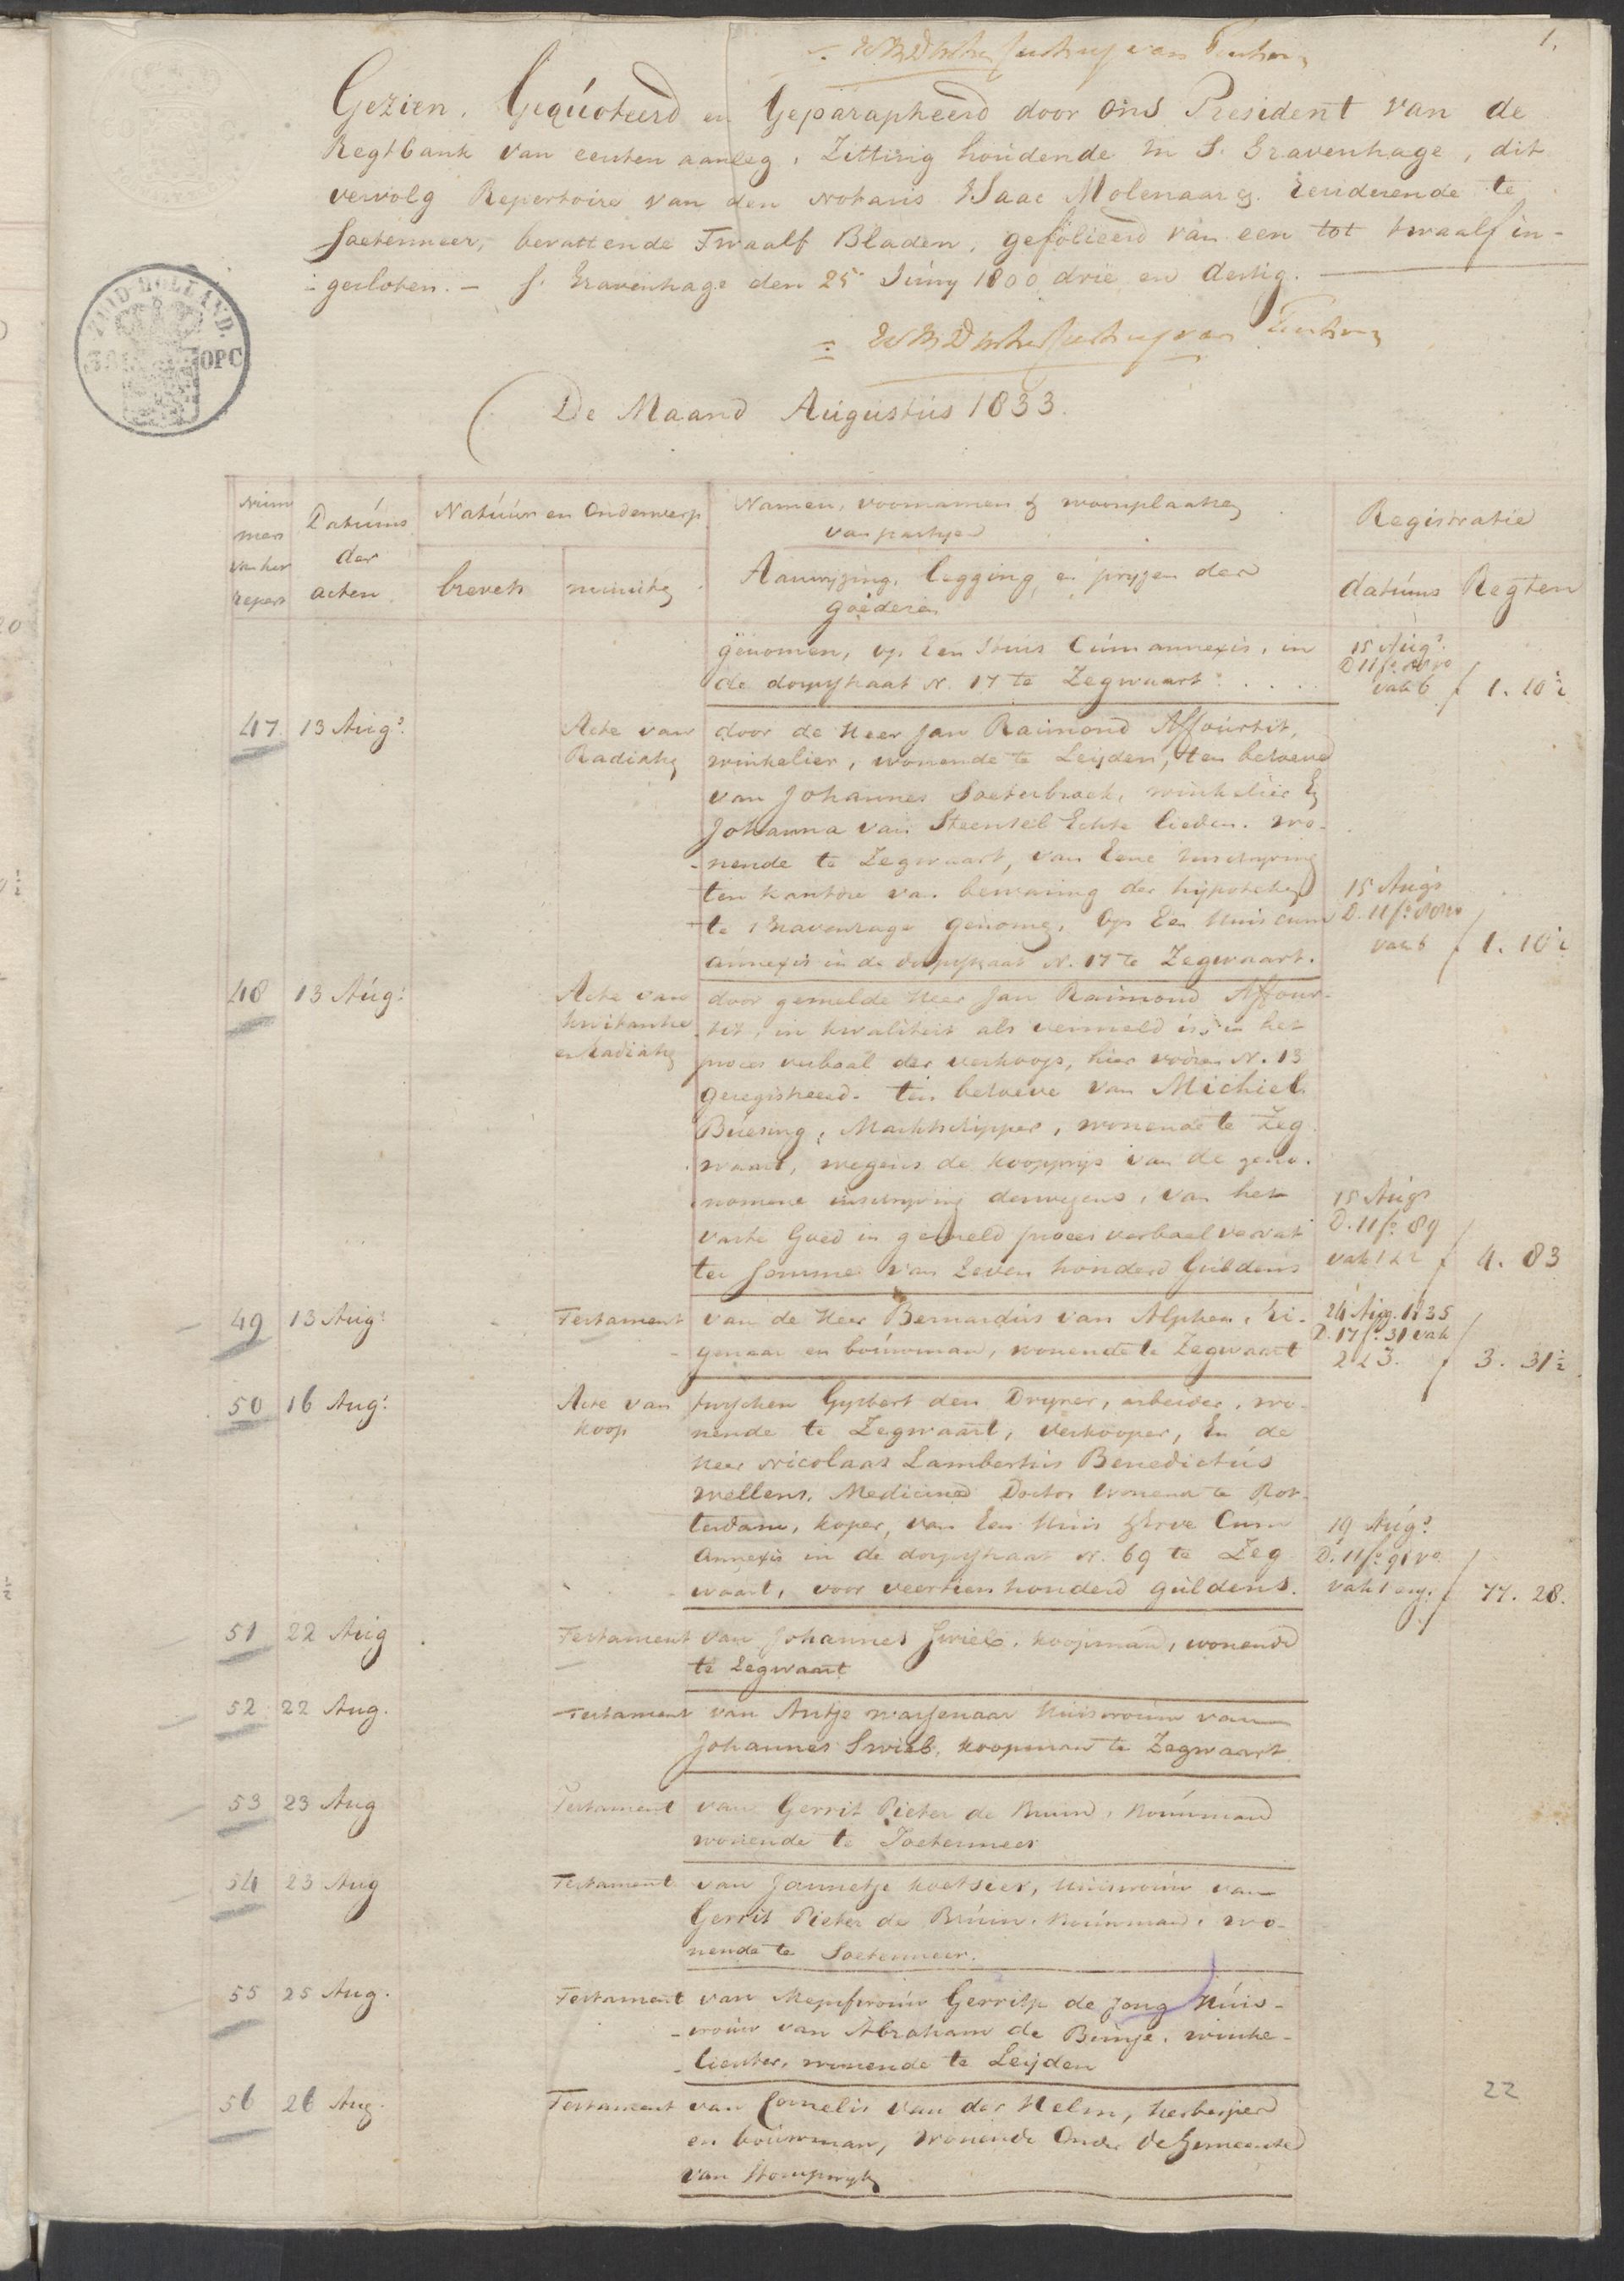 1.
Gezien, Gequoteerd en Geparapheerd door ons President van de
Regtbank van eersten aanleg, Zitting houdende in S. Gravenhage, dit
vervolg Repertoire van den Notaris Isaac Molenaar Residerende te
Soetermeer, bevattende Twaalf Bladen, gefolieerd van een tot twaalf in-
gesloten. - S. Gravenhage den 25 Juny 1800 drie en dertig.
ZUID HOLLAND.
OPC
De Maand Augustus 1833.
Num
mers
van het
repert
Datums
der
acten
Natuur en Onderwerp
brevets
minuten
Namen, voornamen & woonplaatsen
van partyen
Aanwyzing, legging en pryzen der
goederen
Registratie
datums
Regten
genomen, op Een Huis Cum annexis, in
de dorpstraat N. 17 te Zegwaart . . . .
15 Aug.
vak 6
f 1. 10½
47
13 Aug.
Acte van
Radiatie
door de Heer Jan Raimond Affourtit,
winkelier, wonende te Leijden, ten behoeve
van Johannes Soeterbroek, winkelier En
Johanna van Steensel Echte lieden, wo-
nende te Zegwaart, van Eene Inschryving
ten kantore van bewaring der hypotheken
te s Gravenhage genomen, Op Een Huis cum
annexis in de dorpstraat N. 17 te Zegwaart.
15 Aug.
vak 6
f 1. 10½
48
13 Aug.
Acte van
kwitantie
en Radiatie
door gemelde Heer Jan Raimond Affour-
tit, in kwaliteit als vermeld is, in het
proces verbaal der verkoop, hier voren N. 13
geregistreerd. ten behoeve van Michiel
Buesing, Marktschipper, wonende te Zeg
waart, wegens de koopprys van de geno-
nomene inschryving deswegens, van het
vaste Goed in gemeld proces verbaal vervat
ter Somme van Zeven honderd Guldens
15 Aug.
D. 11 fo. 89
vak 1 & 2
f 4. 83
49
13 Aug.
Testament
van de Heer Bernardus van Alphen, Ei-
genaar en bouwman, wonende te Zegwaart
24 Aug. 1835
D. 17 fo. 31 vak
2 & 3.
f 3. 31½
50
16 Aug.
Acte van
koop
tusschen Gysbert den Dryver, arbeider, wo-
nende te Zegwaart, Verkooper, En de
Heer Nicolaas Lambertus Benedictus
Wellens, Medicine Doctor wonend te Rot-
terdam, koper, van Een Huis Erve Cum
Annexis in de dorpstraat N. 69 te Zeg
waart, voor veertien honderd guldens.
19 Aug.
D. 11 fo. 91 vo.
f 77. 28.
51
22 Aug
Testament
van Johannes Swieb, koopman, wonende
te Zegwaart
52
22 Aug.
Testament
van Antje Wassenaar Huisvrouw van
Johannes Swieb, koopman te Zegwaart
53
23 Aug
Testament
van Gerrit Pieter de Bruin, Bouwman
wonende te Zoetermeer
54
23 Aug
Testament
van Jannetje Koetsier, Huisvrouw van
Gerrit Pieter de Bruin, Bouwman, wo-
nende te Soetermeer.
55
25 Aug.
Testament
van Mejufvrouw Gerritje de Jong Huis-
vrouw van Abraham de Bunje, winke-
lierster, wonende te Leijden
56
26 Aug.
Testament
van Cornelis van der Helm, herbergier
en bouwman, Wonende Onder de Gemeente
van Stompwyk
22